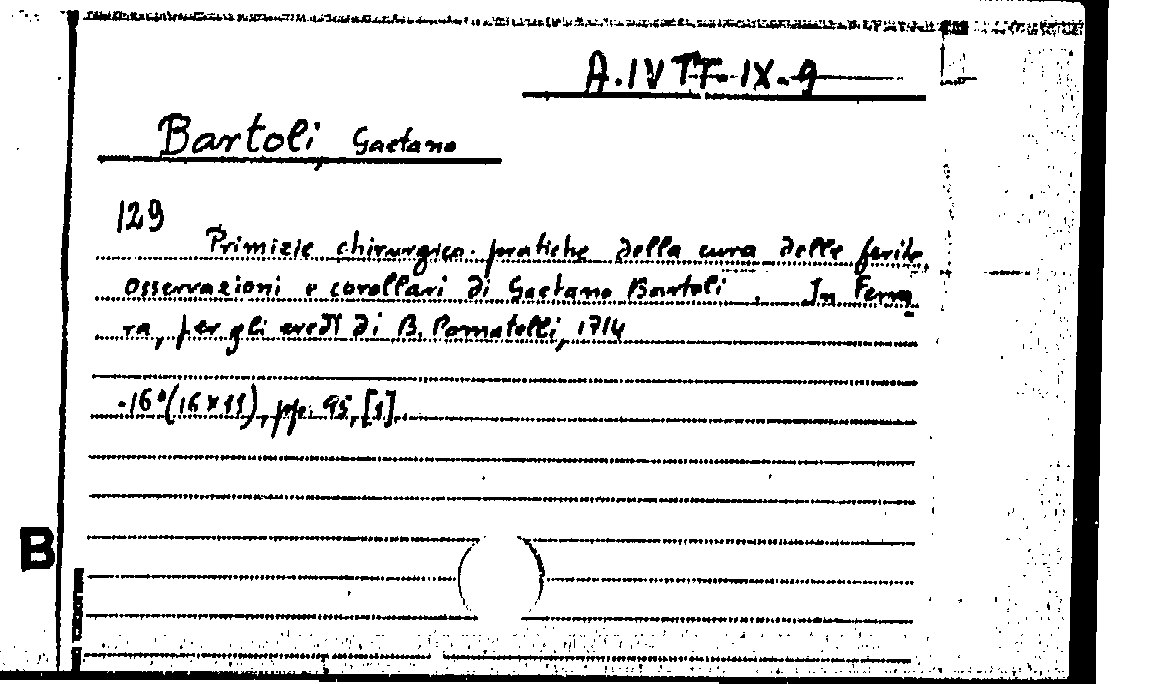 A.IV TT-IX-9
Bartoli, Gaetano
129
Primizie chirurgico-pratiche della cura delle ferite,
osservazioni e corollari di Gaetano Bartoli. In Ferra
ra, per gli eredi di B. Pomatelli, 1714
-16°(16×11), pp. 95, [1].
B